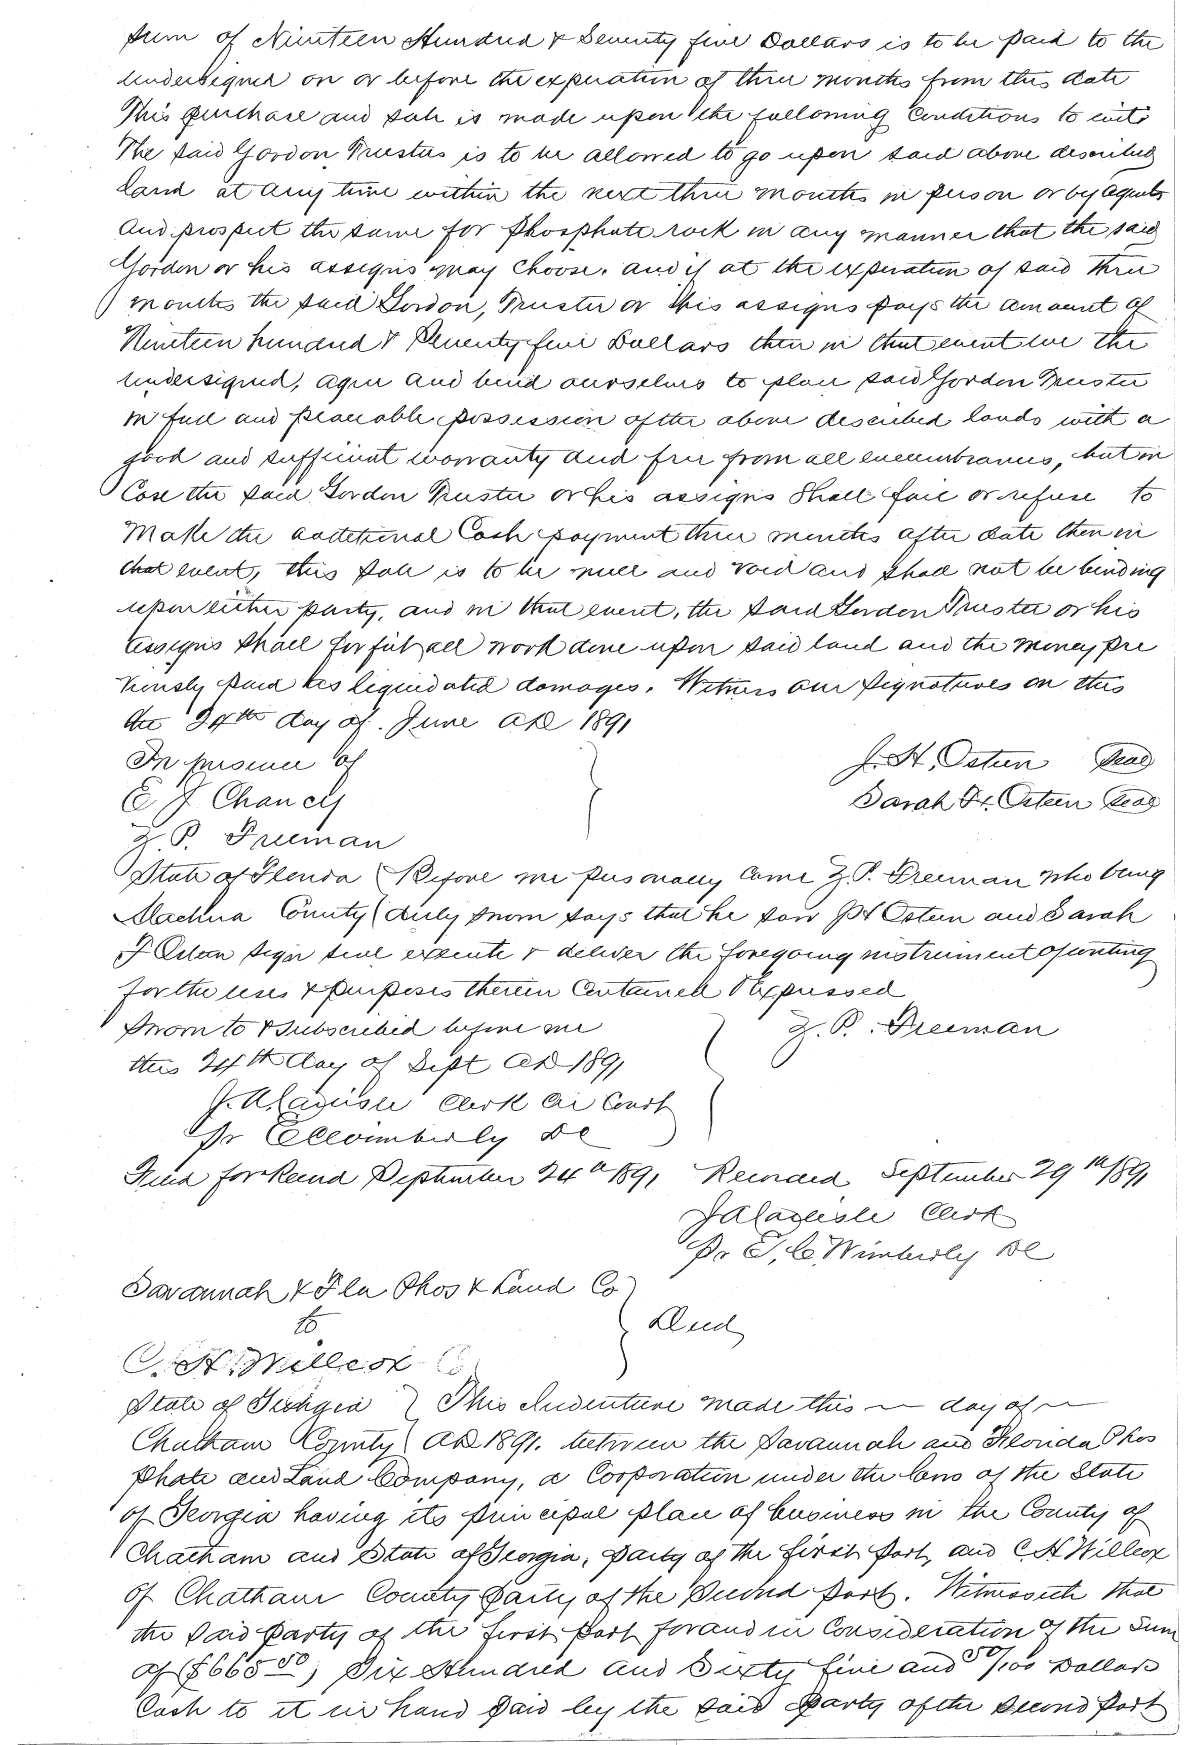 sum of Nineteen Hundred & Seventy five Dollars is to be paid to the
undersigned on or before the expiration of three months from this date
This purchase and sale is made upon the following Conditions to wit:
The said Gordon Trustee is to be allowed to go upon said above described
land at any time within the next three months in person or by agents
and prospect the same for phosphate rock in any manner that the said
Gordon or his assigns may choose. and if at the expiration of said three
months the said Gordon, Trustee or his assigns pays the amount of
Nineteen hundred & Seventy five Dollars then in that event we the
undersigned, agree and bind ourselves to place said Gordon Trustee
in full and peaceable possession of the above described lands with a
good and sufficient warranty and free from all encumbrances, but in
Case the said Gordon Trustee or his assigns shall fail or refuse to
make the additional Cash payment three months after date then in
that event, this sale is to be null and void and shall not be binding
upon either party, and in that event, the said Gordon Trustee or his
assigns shall forfeit all work done upon said land and the money pre
viously paid as liquidated damages. Witness our signatures on this
the 24th day of June AD 1891
In presence of
E J Chancey
Z. P. Freeman
J. H. Osteen Seal
Sarah F. Osteen Seal
State of Florida Before me personally came Z. P. Freeman who being
Alachua County duly sworn says that he saw J H Osteen and Sarah
F Osteen sign seal execute & deliver the foregoing instrument of writing
for the uses & purposes therein Contained & Expressed
Sworn to & subscribed before me Z. P. Freeman
this 24th day of Sept AD 1891
J. A. Carlisle Clerk Cir Court
Pr E C Wimberly DC
Filed for Record September 24th 1891 Recorded September 29th 1891
J A Carlisle Clerk
Pr E. C. Wimberly DC
Savannah & Fla Phos & Land Co
to
Deed
C. H. Willcox
State of Georgia This Indenture made this — day of —
Chatham County AD 1891. between the Savannah and Florida Phos
phate and Land Company, a Corporation under the laws of the State
of Georgia having its principal place of business in the County of
Chatham and State of Georgia, party of the first part, and C H Willcox
of Chatham County party of the Second part. Witnesseth that
the said party of the first part for and in Consideration of the Sum
of ($665 50) Six Hundred and Sixty five and 50/100 Dollars
Cash to it in hand paid by the said party of the second part